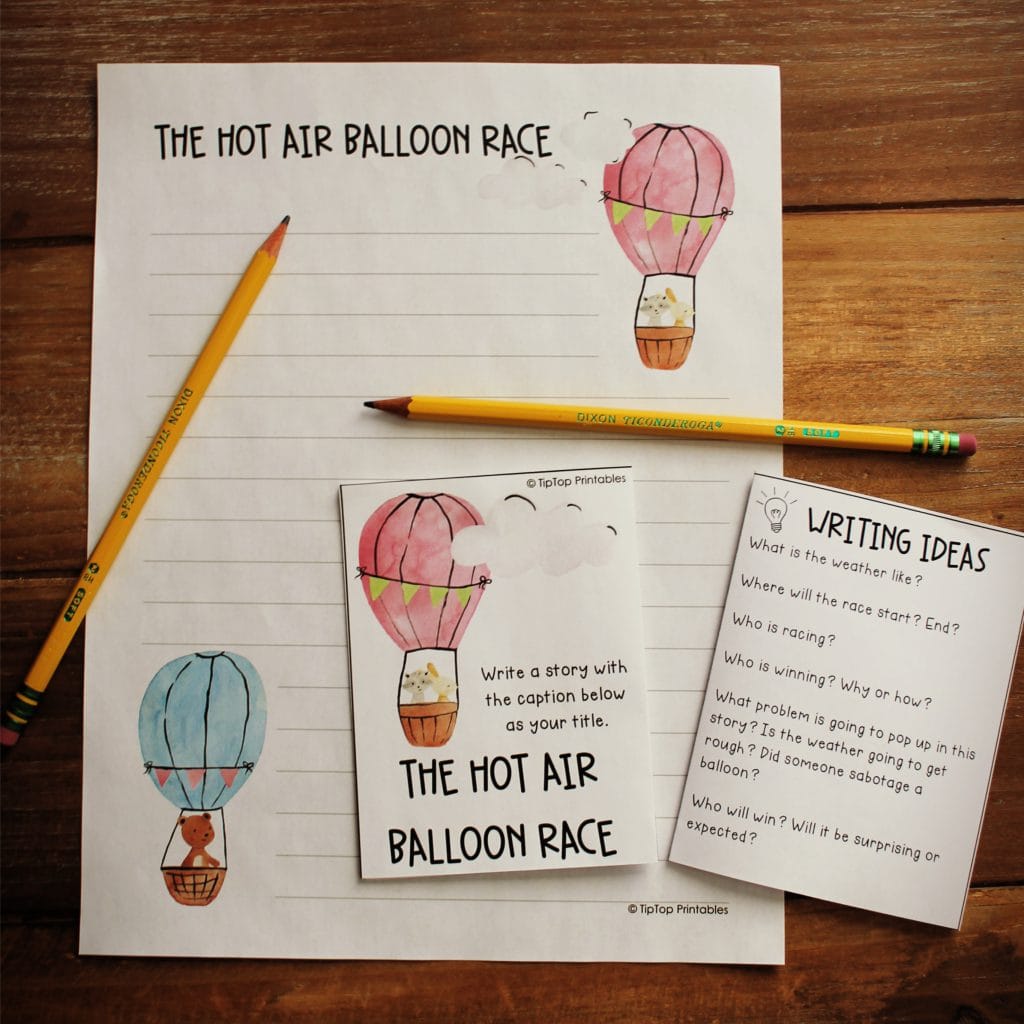 THE HOT AIR BALLOON RACE
DIXON TICONDEROGA®
2
HB
SOFT
DIXON TICONDEROGA®
2
HB
SOFT
© TipTop Printables
Write a story with
the caption below
as your title.
THE HOT AIR
BALLOON RACE
WRITING IDEAS
What is the weather like?
Where will the race start? End?
Who is racing?
Who is winning? Why or how?
What problem is going to pop up in this
story? Is the weather going to get
rough? Did someone sabotage a
balloon?
Who will win? Will it be surprising or
expected?
© TipTop Printables